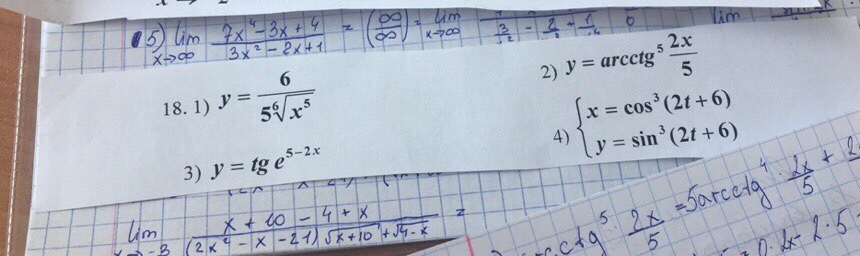 5) lim x→∞ (7x⁴ - 3x + 4)/(3x² - 2x + 1) = (∞/∞) = lim x→∞
18. 1) y = 6/(5 ⁶√x⁵)
2) y = arcctg⁵ 2x/5
3) y = tg e^(5-2x)
4) { x = cos³(2t + 6)
y = sin³(2t + 6)
lim x→-3 (x + 10 - 4 + x)/((2x² - x - 21) √x+10 + √4-x) =
ctg⁵ · 2x/5 = 5arcctg⁴ · 2x/5 +